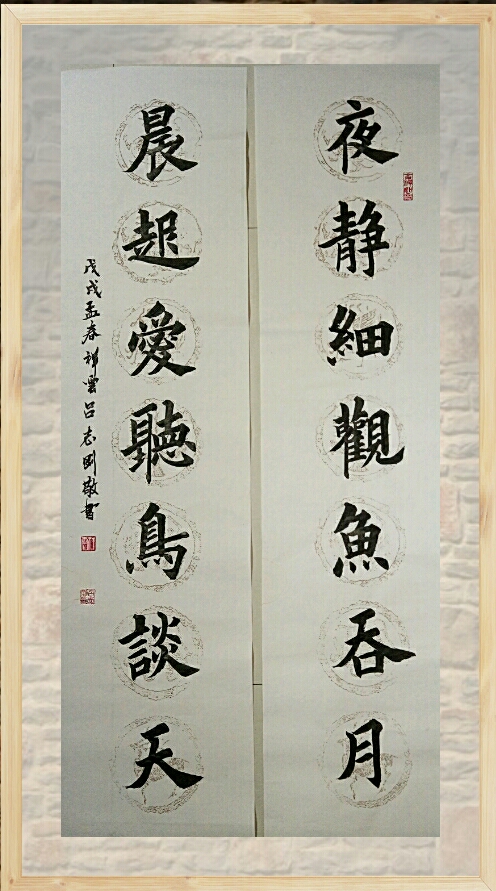 夜静細觀魚吞月
晨起愛聽鳥談天
戊戌孟春祥雲吕志剛敬書